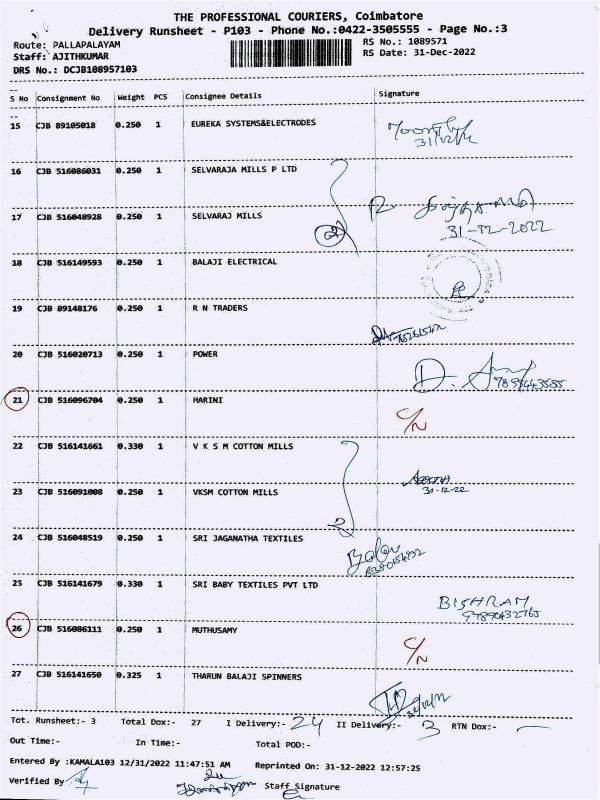 THE PROFESSIONAL COURIERS, Coimbatore
Delivery Runsheet - P103 - Phone No.:0422-3505555 - Page No.:3
Route: PALLAPALAYAM
RS No.: 1089571
Staff: AJITHKUMAR
RS Date: 31-Dec-2022
DRS No.: DCJB108957103
S No Consignment No Weight PCS Consignee Details Signature
15 CJB 89105018 0.250 1 EUREKA SYSTEMS&ELECTRODES
31/12/22
16 CJB 516086031 0.250 1 SELVARAJA MILLS P LTD
17 CJB 516048928 0.250 1 SELVARAJ MILLS
2
31-12-2022
18 CJB 516149593 0.250 1 BALAJI ELECTRICAL
19 CJB 89148176 0.250 1 R N TRADERS
20 CJB 516020713 0.250 1 POWER
21 CJB 516096704 0.250 1 HARINI
C/N
22 CJB 516141661 0.330 1 V K S M COTTON MILLS
23 CJB 516091008 0.250 1 VKSM COTTON MILLS
31-12-22
2
24 CJB 516048519 0.250 1 SRI JAGANATHA TEXTILES
25 CJB 516141679 0.330 1 SRI BABY TEXTILES PVT LTD
BISHRAM
26 CJB 516086111 0.250 1 MUTHUSAMY
C/N
27 CJB 516141650 0.325 1 THARUN BALAJI SPINNERS
Tot. Runsheet:- 3 Total Dox:- 27 I Delivery:- 24 II Delivery:- 3 RTN Dox:- —
Out Time:- In Time:- Total POD:-
Entered By :KAMALA103 12/31/2022 11:47:51 AM Reprinted On: 31-12-2022 12:57:25
Verified By
Staff Signature